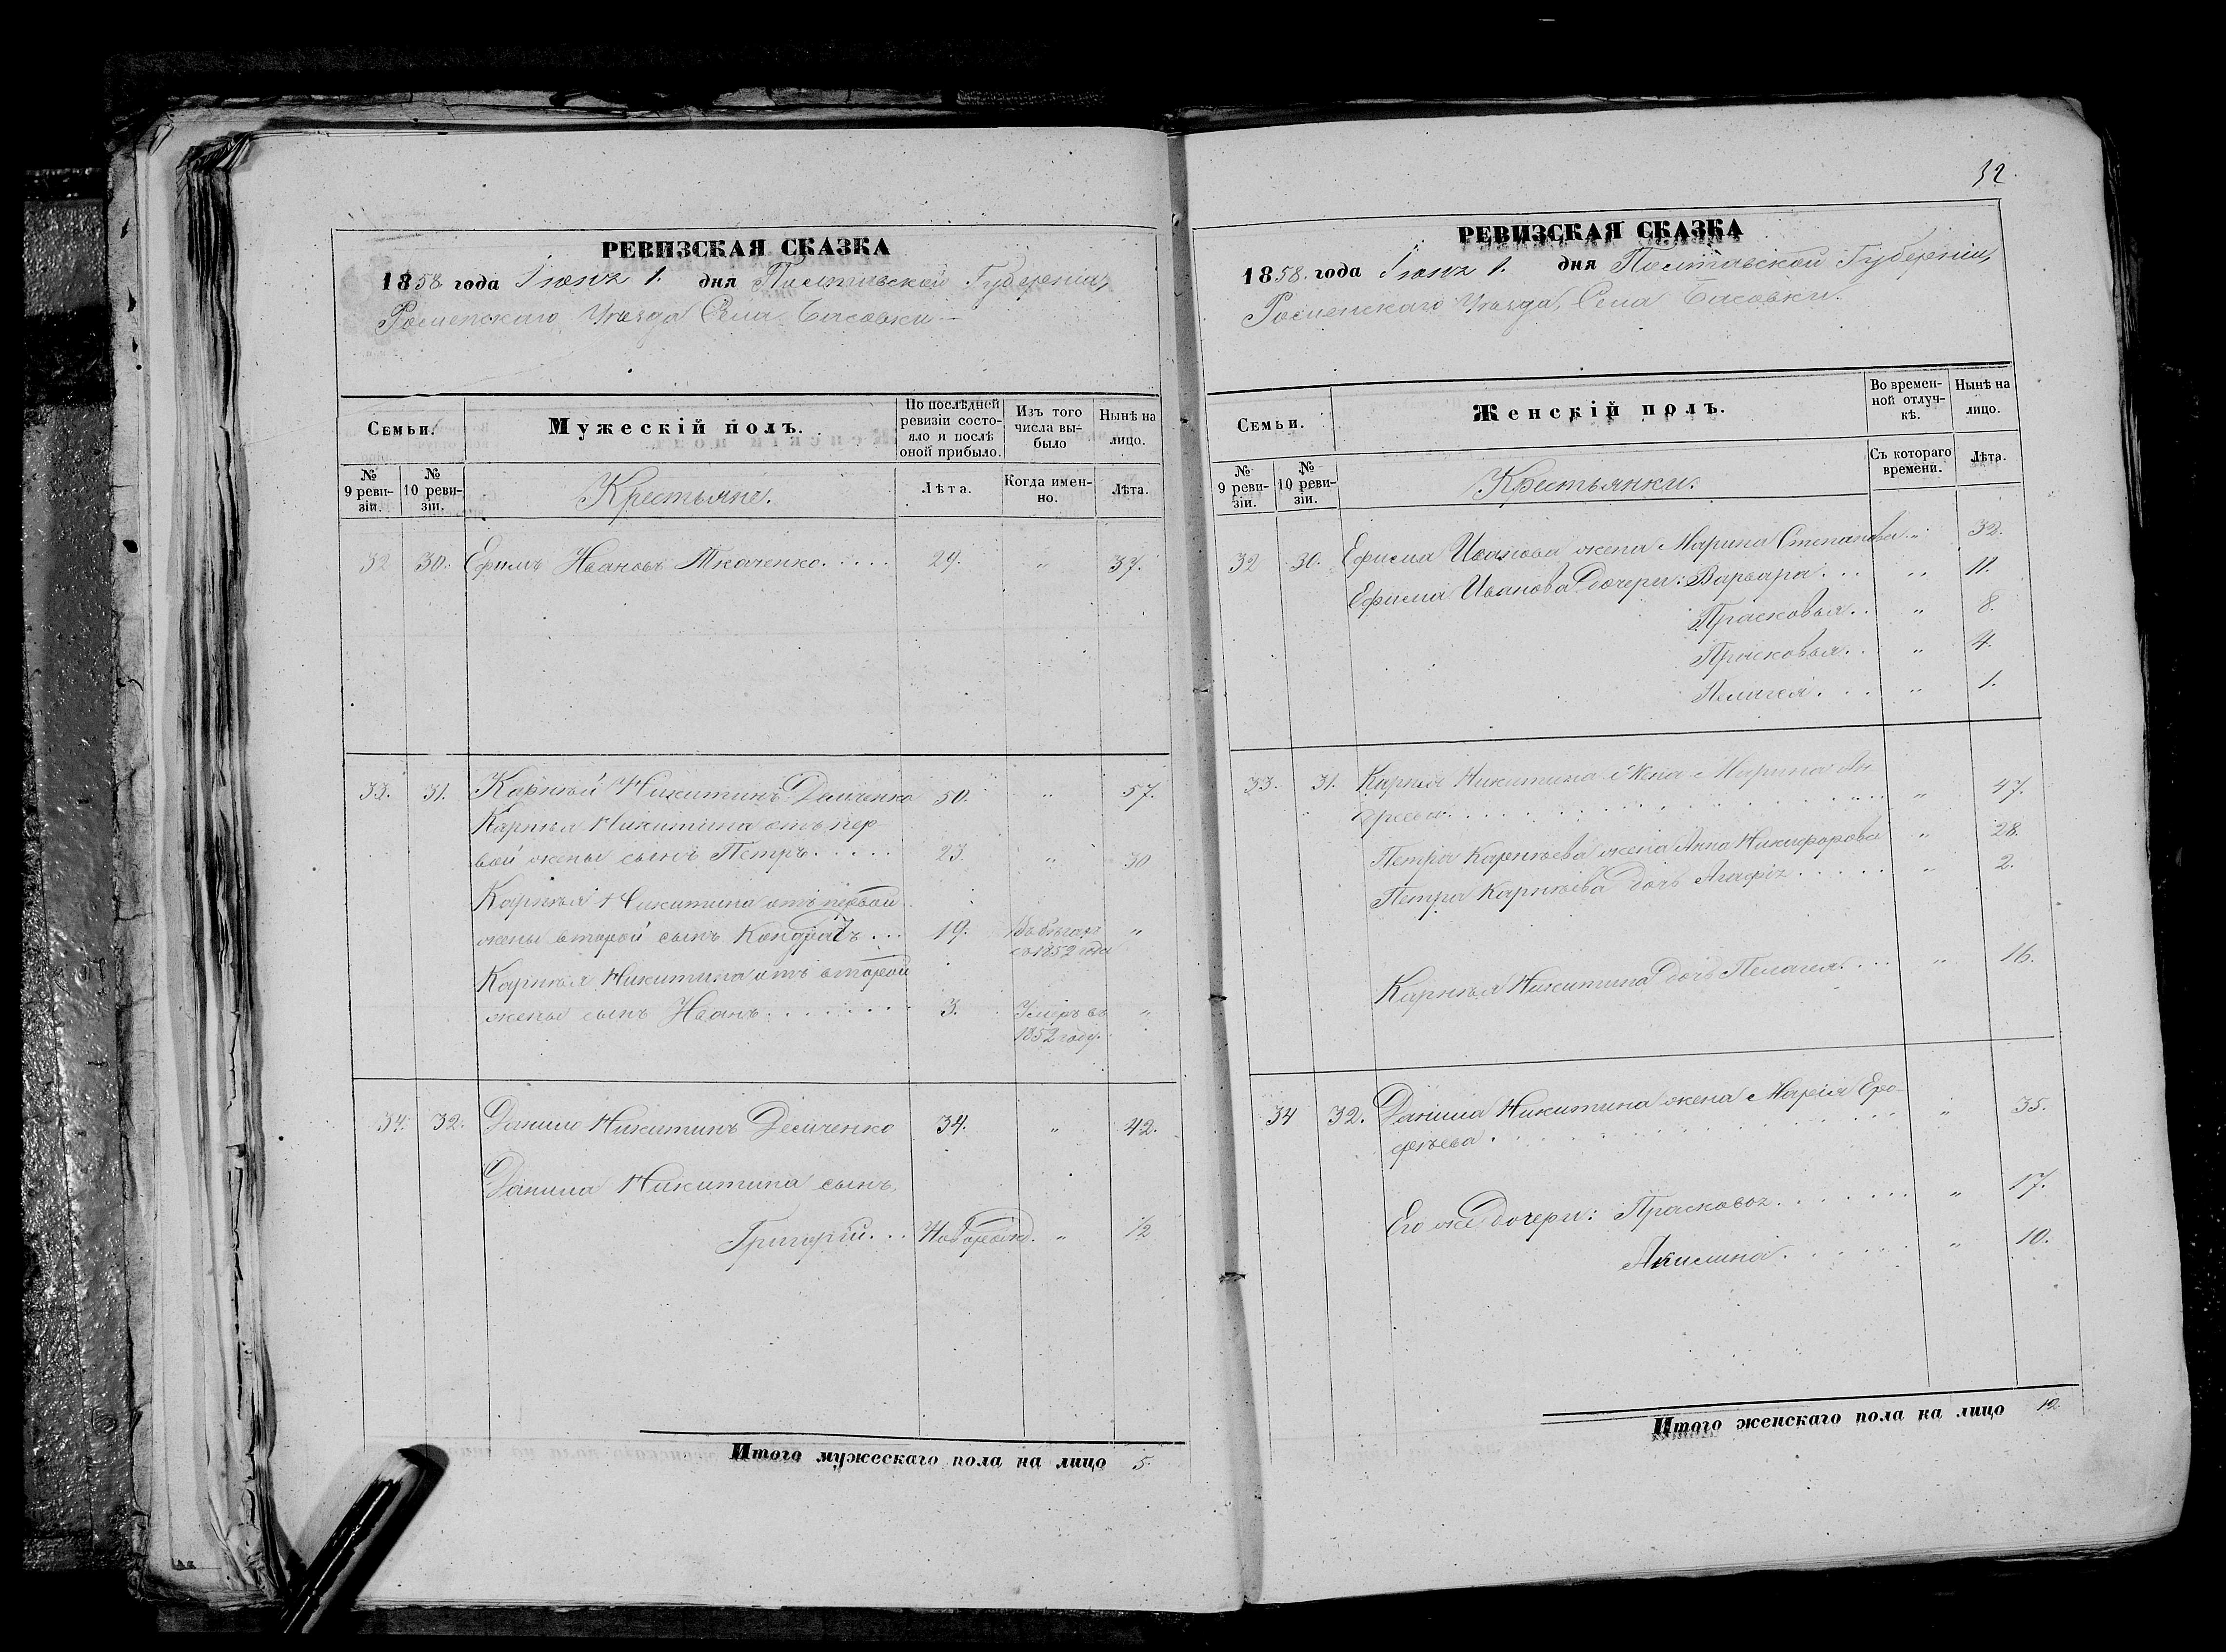 РЕВИЗСКАЯ СКАЗКА
1858 года Іюня 1. дня Полтавской Губерніи,
Роменскаго Уѣзда Села Басовки
Семьи.
Мужескій полъ.
По послѣдней ревизіи состояло и послѣ оной прибыло.
Изъ того числа выбыло
Нынѣ на лицо.
№ 9 ревизіи.
№ 10 ревизіи.
Крестьяне.
Лѣта.
Когда именно.
Лѣта.
32 30. Ефимъ Ивановъ Ткаченко. . . . . 29. " 37.
33. 31. Карнѣй Никитинъ Демченко 50. " 57.
Карнѣя Никитина отъ пер-
вой жены сынъ Петръ. . . . . 23. " 30
Карнѣя Никитина отъ первой
жены второй сынъ Кондратъ . . . 19. Въ бѣгахъ "
съ 1852 года
Карнѣя Никитина отъ второй
жены сынъ Иванъ. . . . . . . . 3. Умеръ въ "
1852 году.
34. 32. Данило Никитинъ Демченко 34. " 42.
Данила Никитина сынъ
Григорій. . . Новорожд. " 1/2
Итого мужескаго пола на лицо 5.
32.
РЕВИЗСКАЯ СКАЗКА
1858. года Іюня 1. дня Полтавской Губерніи,
Роменскаго Уѣзда, Села Басовки.
Семьи.
Женскій полъ.
Во временной отлучкѣ.
Нынѣ на лицо.
№ 9 ревизіи.
№ 10 ревизіи.
Крестьянки.
Съ котораго времени.
Лѣта.
32 30. Ефима Иванова жена Марина Степанова " 32.
Ефима Иванова дочери: Варвара . . . " 11.
Прасковья. . " 8.
Прасковья. . " 4.
Пелагея. . . . " 1.
33. 31. Карнѣя Никитина Жена Марина Ан-
дреева. . . . . . . . . . . . . " 47.
Петра Карнѣева жена Анна Никифорова " 28.
Петра Карнѣева дочь Агафія . . . . . " 2.
Карнѣя Никитина дочь Пелагея. . . . " 16.
34 32. Данила Никитина жена Марія Еро-
фѣева . . . . . . . . . . . . . . " 35.
Его же дочери: Прасковья. . . . . . . " 17.
Акилина. . . . . . . " 10.
Итого женскаго пола на лицо 12.